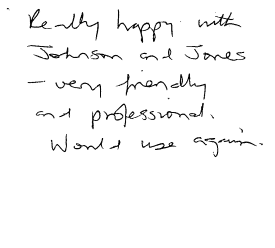 Really happy with
Johnson and Jones
- very friendly
and professional.
Would use again.